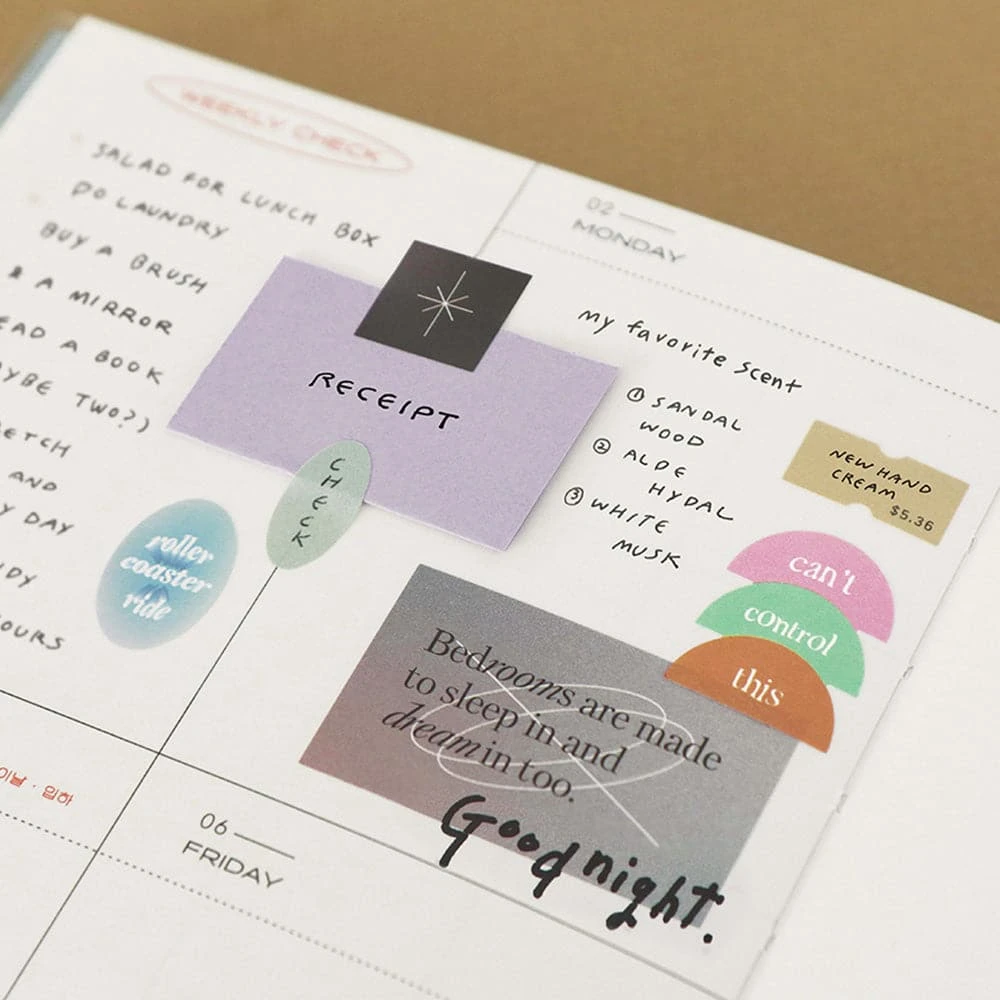 WEEKLY CHECK
SALAD FOR LUNCH BOX
DO LAUNDRY
BUY A BRUSH
& A MIRROR
EAD A BOOK
YBE TWO?)
ETCH
AND
Y DAY
DY
OURS
RECEIPT
CHECK
roller
coaster
ride
이날 · 입하
02
MONDAY
my favorite scent
① SANDAL
WOOD
② ALDE
HYDAL
③ WHITE
MUSK
NEW HAND
CREAM
$5.36
can't
control
this
Bedrooms are made
to sleep in and
dream in too.
Good night.
06
FRIDAY